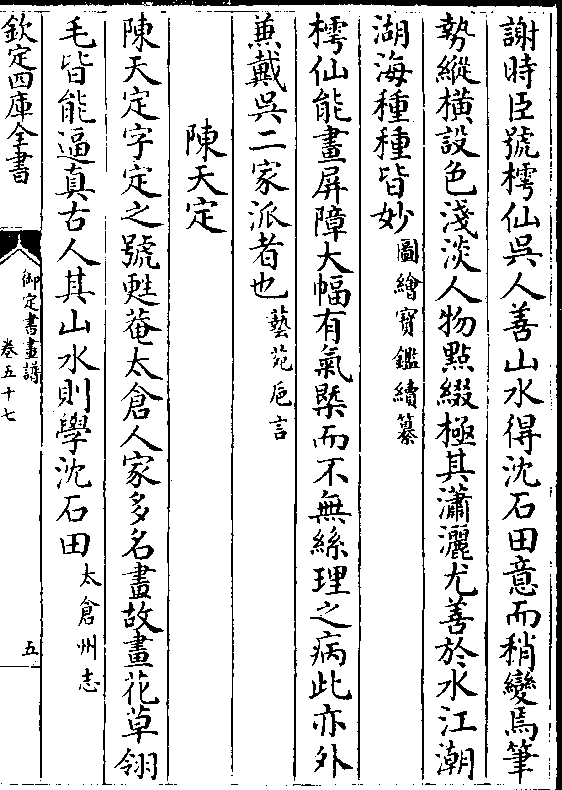 謝時臣號樗仙吳人善山水得沈石田意而稍變焉筆
勢縱橫設色淺淡人物點綴極其瀟灑尤善於水江潮
湖海種種皆妙圖繪寳鑑續纂
樗仙能畫屏障大幅有氣槩而不無絲理之病此亦外
兼戴吳二家派者也藝苑巵言
陳天定
陳天定字定之號甦菴太倉人家多名畫故畫花草翎
毛皆能逼真古人其山水則學沈石田太倉州志
欽定四庫全書
御定書畫譜
卷五十七
五